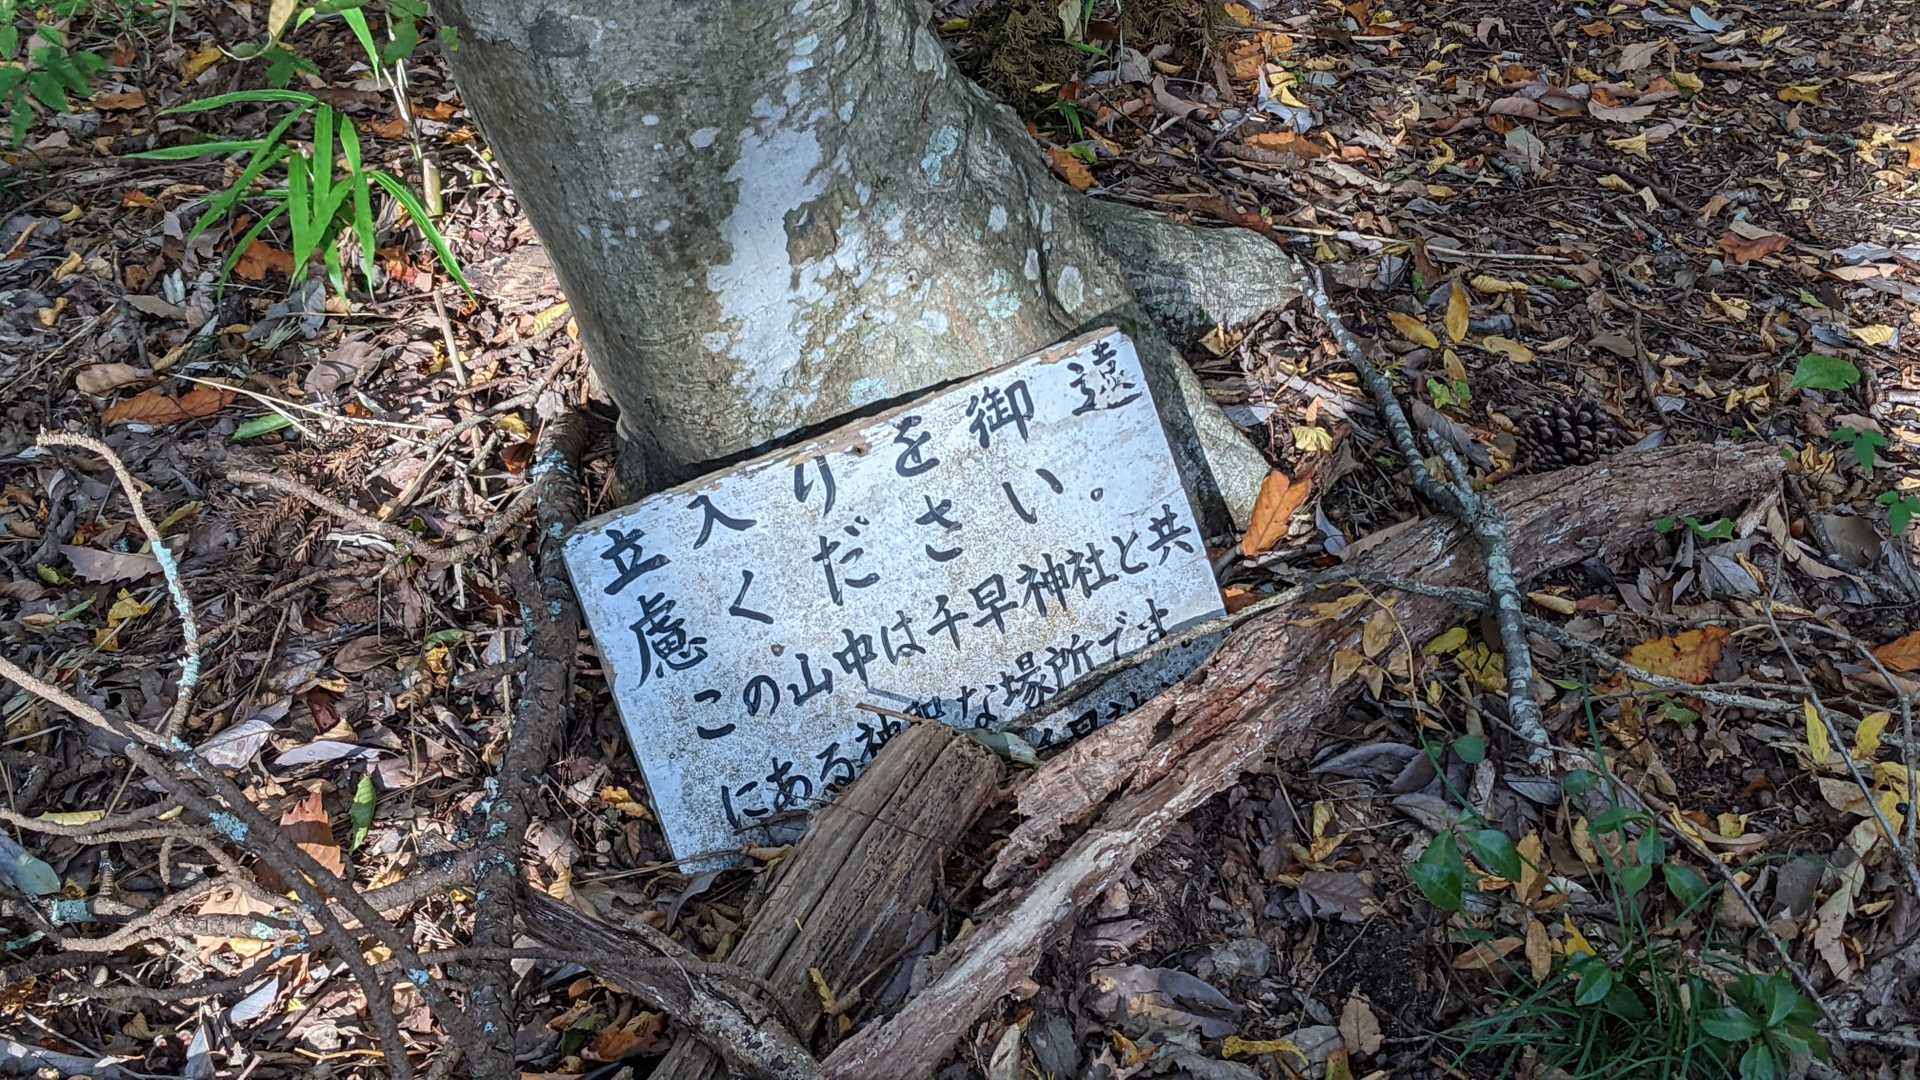 立入りを御遠
慮ください。
この山中は千早神社と共
にある神聖な場所です。
千早神社